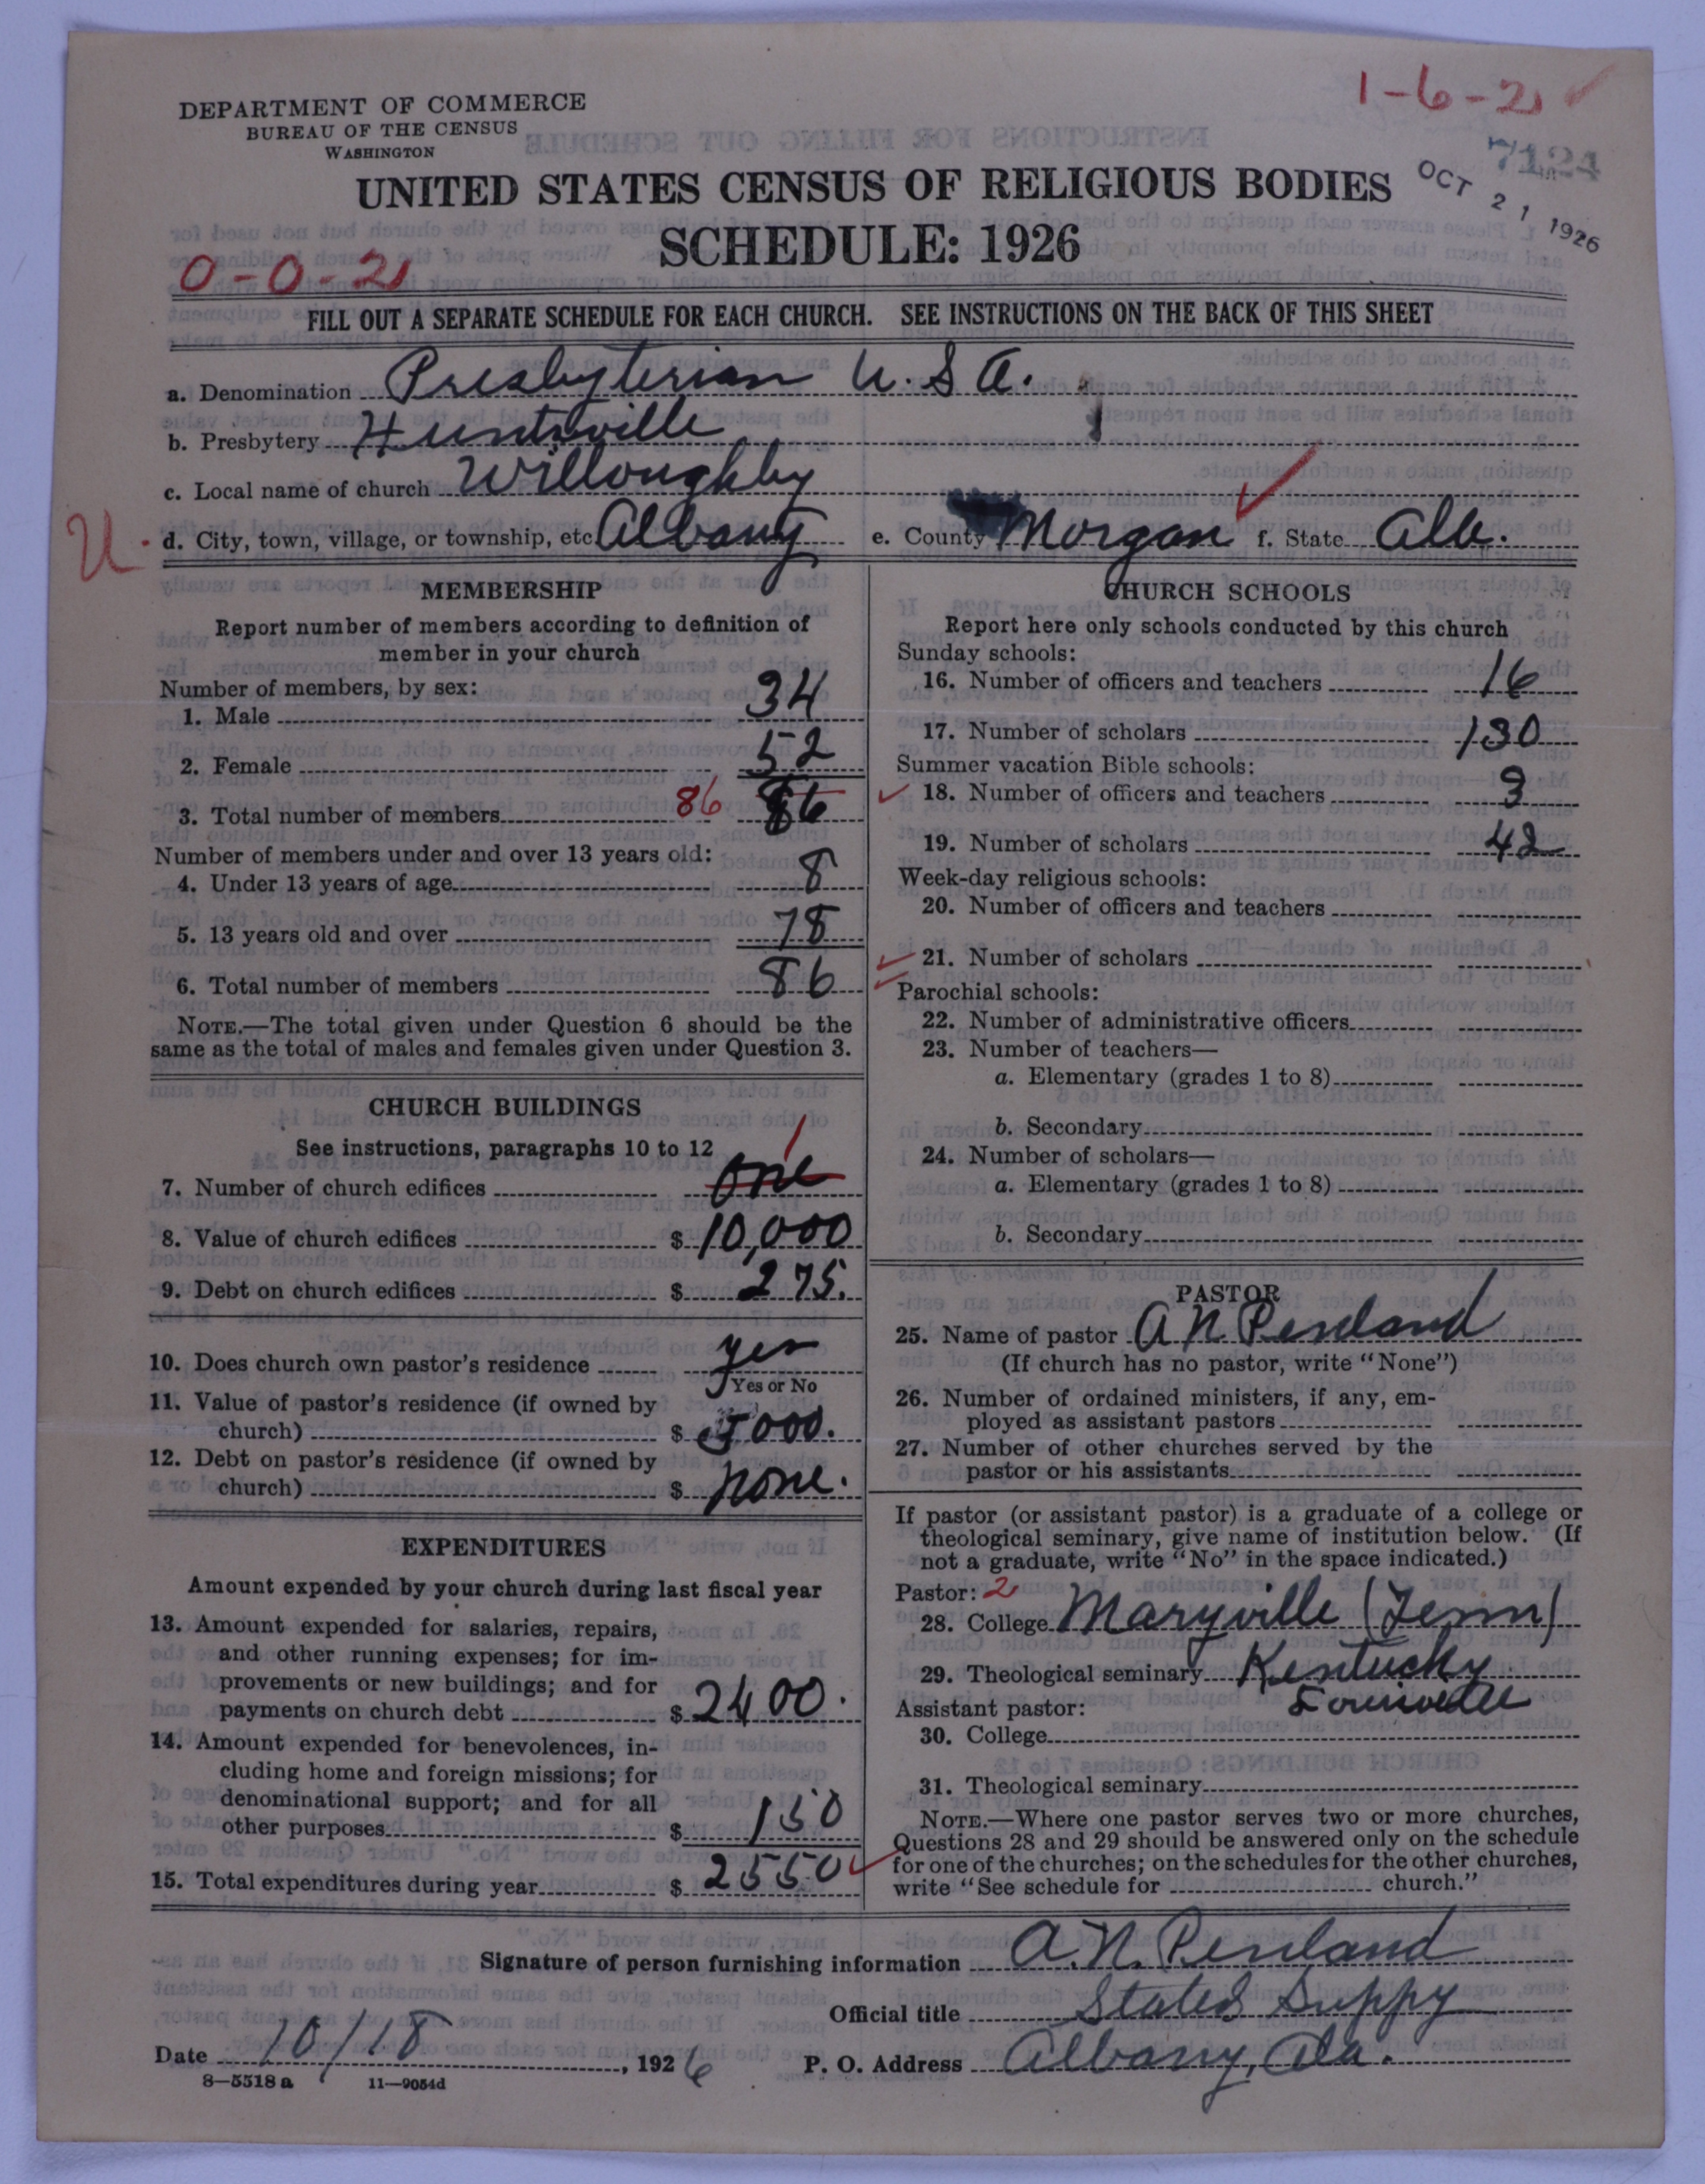 1-6-2
DEPARTMENT OF COMMERCE
BUREAU OF THE CENSUS
WASHINGTON
7124
OCT 21 1926
UNITED STATES CENSUS OF RELIGIOUS BODIES
SCHEDULE: 1926
0-0-2
FILL OUT A SEPARATE SCHEDULE FOR EACH CHURCH. SEE INSTRUCTIONS ON THE BACK OF THIS SHEET
a. Denomination Presbyterian U.S.A.
b. Presbytery Huntsville
c. Local name of church Willoughby
U. d. City, town, village, or township, etc. Albany e. County Morgan f. State Alb.
MEMBERSHIP
Report number of members according to definition of
member in your church
Number of members, by sex:
1. Male 34
2. Female 52
3. Total number of members 86 86
Number of members under and over 13 years old:
4. Under 13 years of age 8
5. 13 years old and over 78
6. Total number of members 86
NOTE.—The total given under Question 6 should be the
same as the total of males and females given under Question 3.
CHURCH BUILDINGS
See instructions, paragraphs 10 to 12
1
7. Number of church edifices One
8. Value of church edifices $ 10,000
9. Debt on church edifices $ 275.
10. Does church own pastor's residence yes
Yes or No
11. Value of pastor's residence (if owned by
church) $ 5000.
12. Debt on pastor's residence (if owned by
church) $ none.
EXPENDITURES
Amount expended by your church during last fiscal year
13. Amount expended for salaries, repairs,
and other running expenses; for im-
provements or new buildings; and for
payments on church debt $ 2400.
14. Amount expended for benevolences, in-
cluding home and foreign missions; for
denominational support; and for all
other purposes $ 150
15. Total expenditures during year $ 2550
CHURCH SCHOOLS
Report here only schools conducted by this church
Sunday schools:
16. Number of officers and teachers 16
17. Number of scholars 130
Summer vacation Bible schools:
18. Number of officers and teachers 3
19. Number of scholars 42
Week-day religious schools:
20. Number of officers and teachers
21. Number of scholars
Parochial schools:
22. Number of administrative officers
23. Number of teachers—
a. Elementary (grades 1 to 8)
b. Secondary
24. Number of scholars—
a. Elementary (grades 1 to 8)
b. Secondary
PASTOR
25. Name of pastor A N Penland
(If church has no pastor, write "None")
26. Number of ordained ministers, if any, em-
ployed as assistant pastors
27. Number of other churches served by the
pastor or his assistants
If pastor (or assistant pastor) is a graduate of a college or
theological seminary, give name of institution below. (If
not a graduate, write "No" in the space indicated.)
Pastor: 2
28. College Maryville (Tenn)
29. Theological seminary Kentucky
Louisville
Assistant pastor:
30. College
31. Theological seminary
NOTE.—Where one pastor serves two or more churches,
Questions 28 and 29 should be answered only on the schedule
for one of the churches; on the schedules for the other churches,
write "See schedule for church."
Signature of person furnishing information A. N. Penland
Official title Stated Suppy
Date 10/18, 1926 P. O. Address Albany, Ala.
8—5518 a 11—9054d